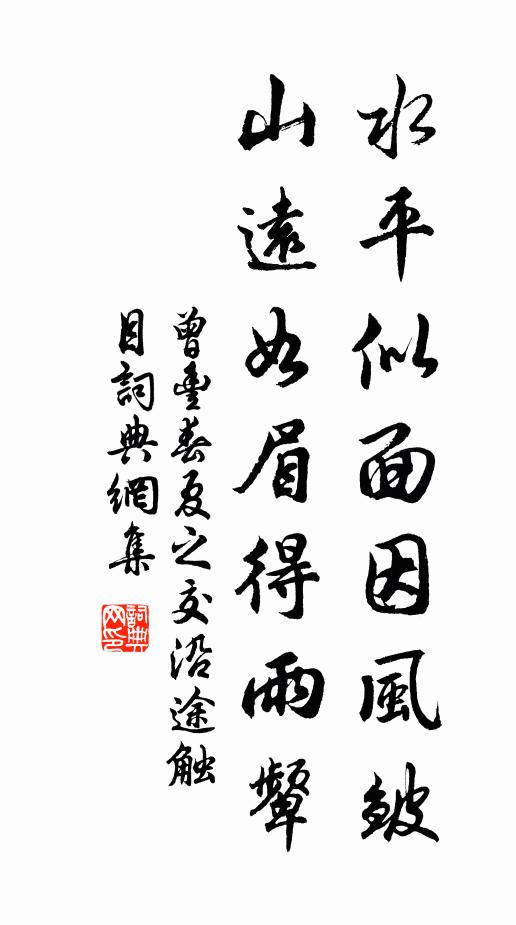 水平似面因風皺
山遠如眉得雨顰
曾豐春夏之交沿途触
目詞典網集
詞典
网印